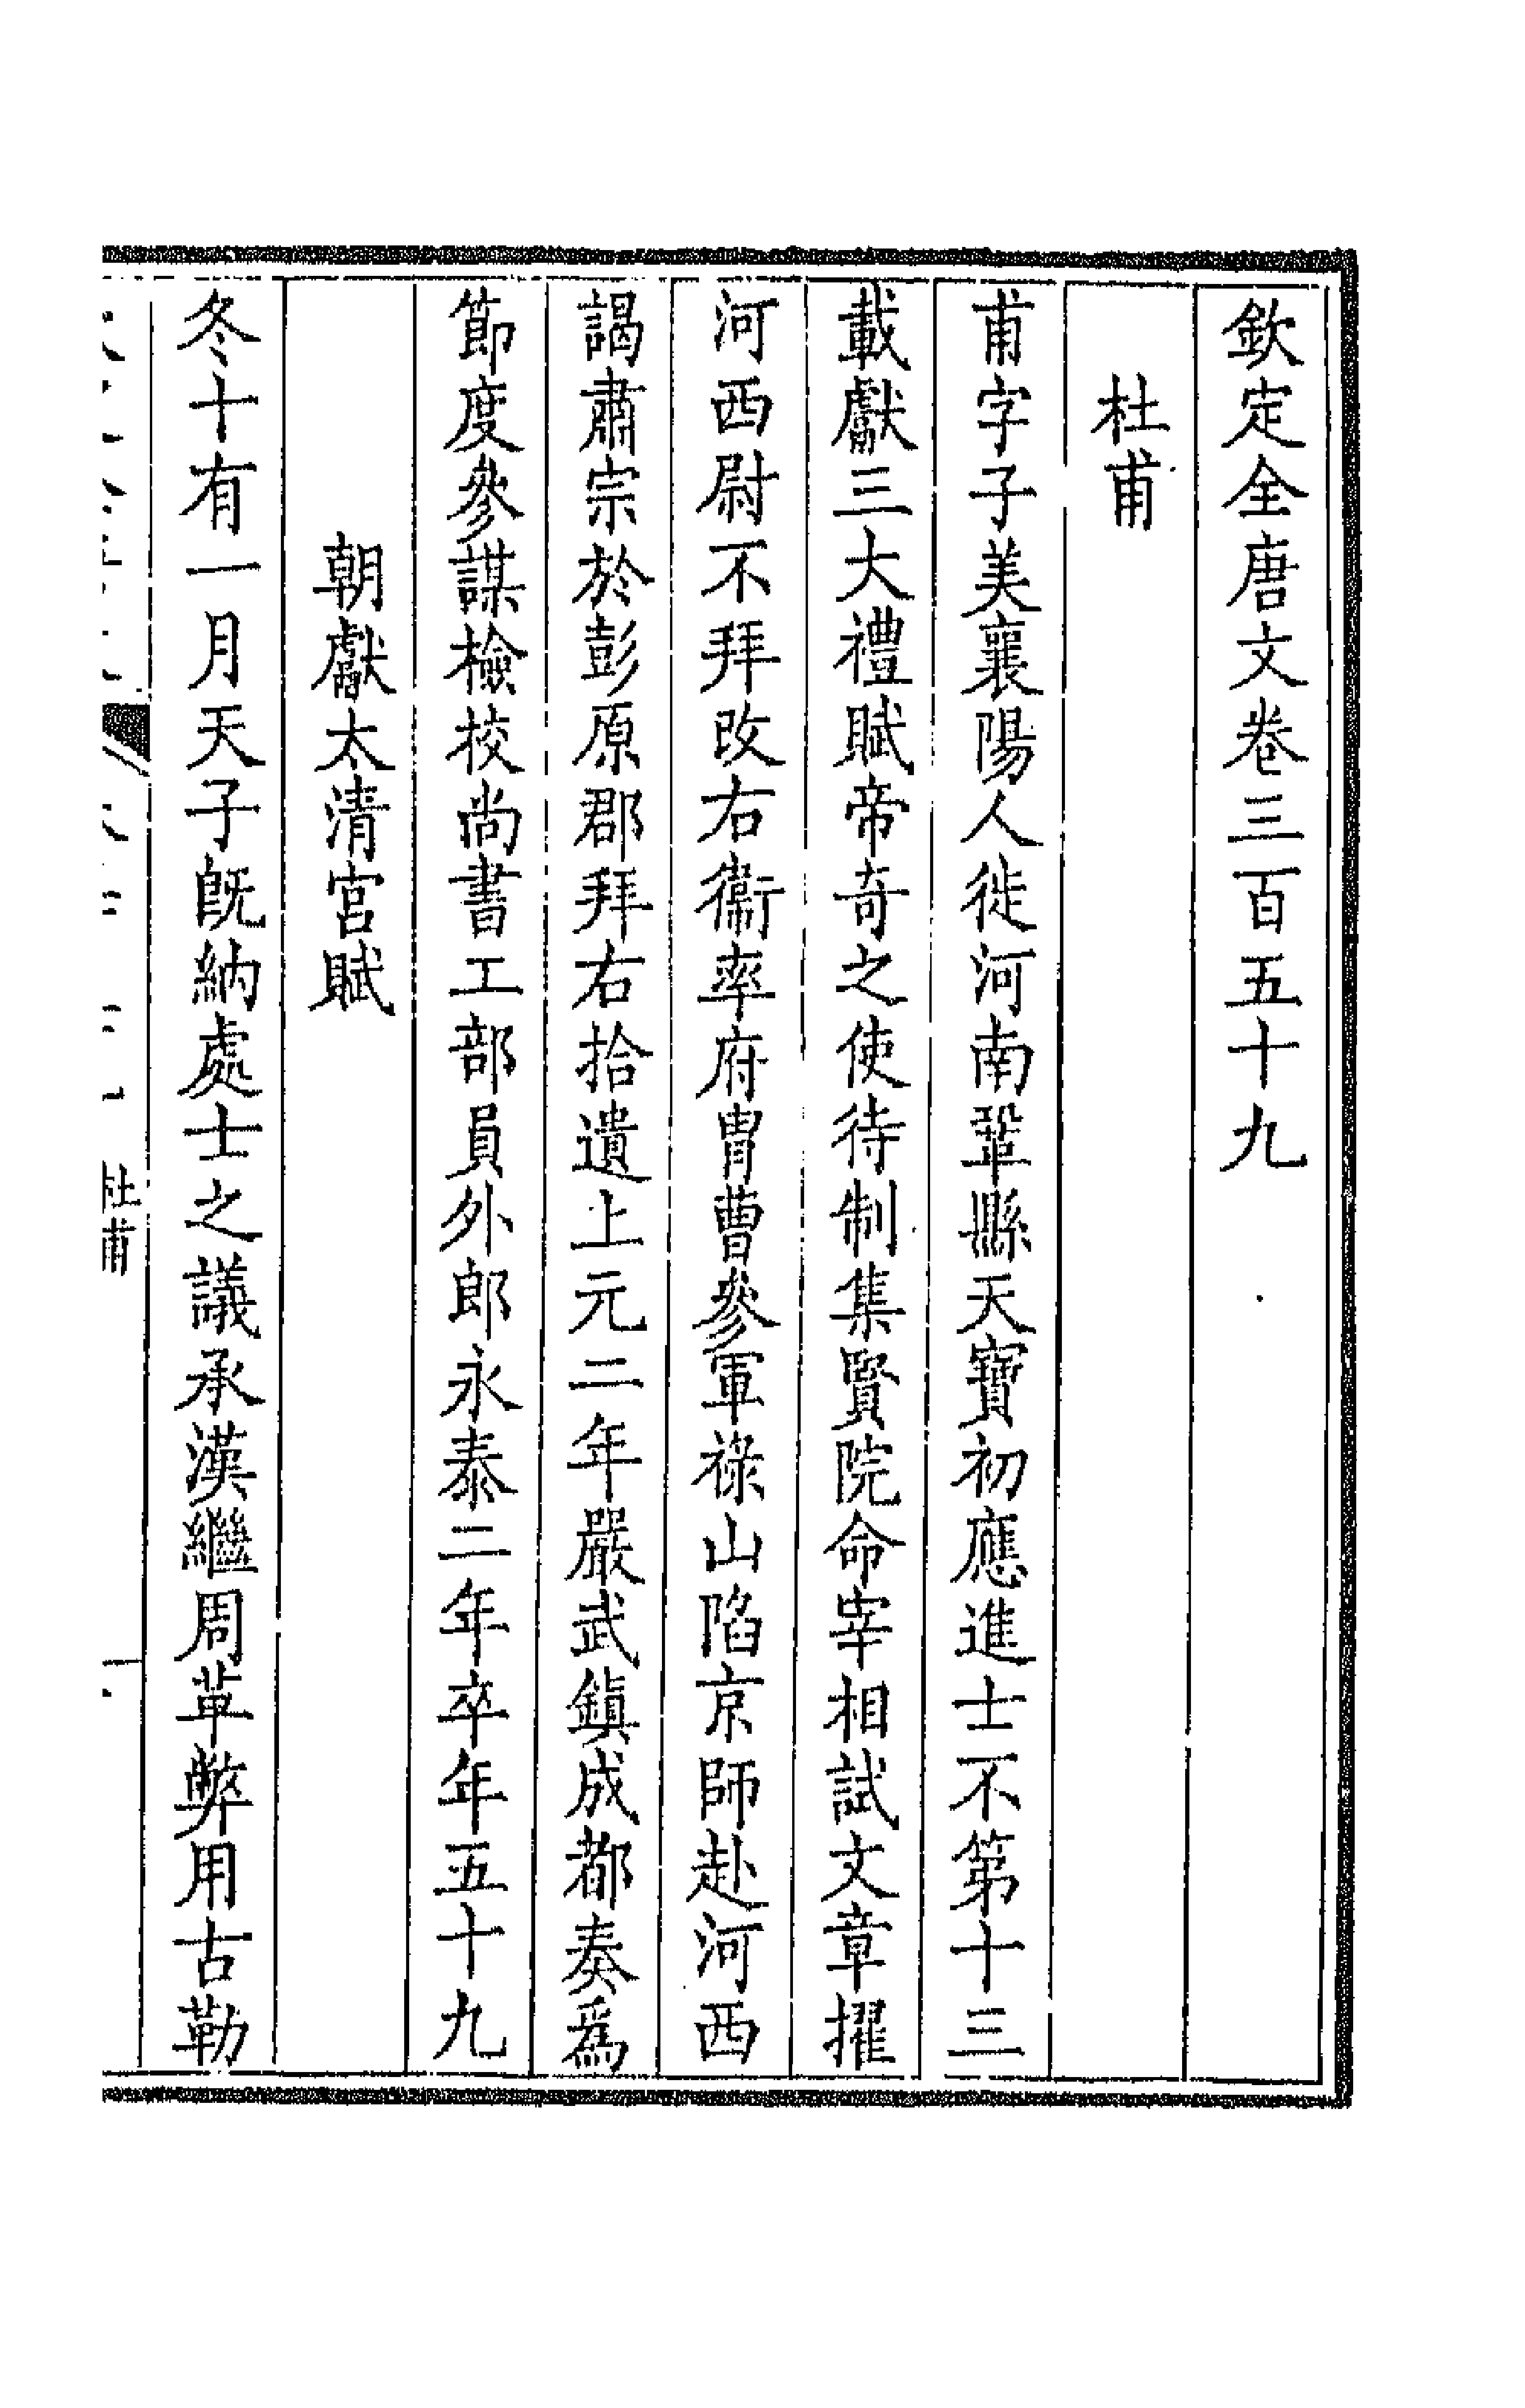 欽定全唐文卷三百五十九
杜甫
甫字子美襄陽人徙河南鞏縣天寶初應進士不第十三
載獻三大禮賦帝奇之使待制集賢院命宰相試文章擢
河西尉不拜改右衞率府胄曹參軍祿山陷京師赴河西
謁肅宗於彭原郡拜右拾遺上元二年嚴武鎭成都奏爲
節度參謀檢校尚書工部員外郎永泰二年卒年五十九
朝獻太清宮賦
冬十有一月天子旣納處士之議承漢繼周革弊用古勒
杜甫